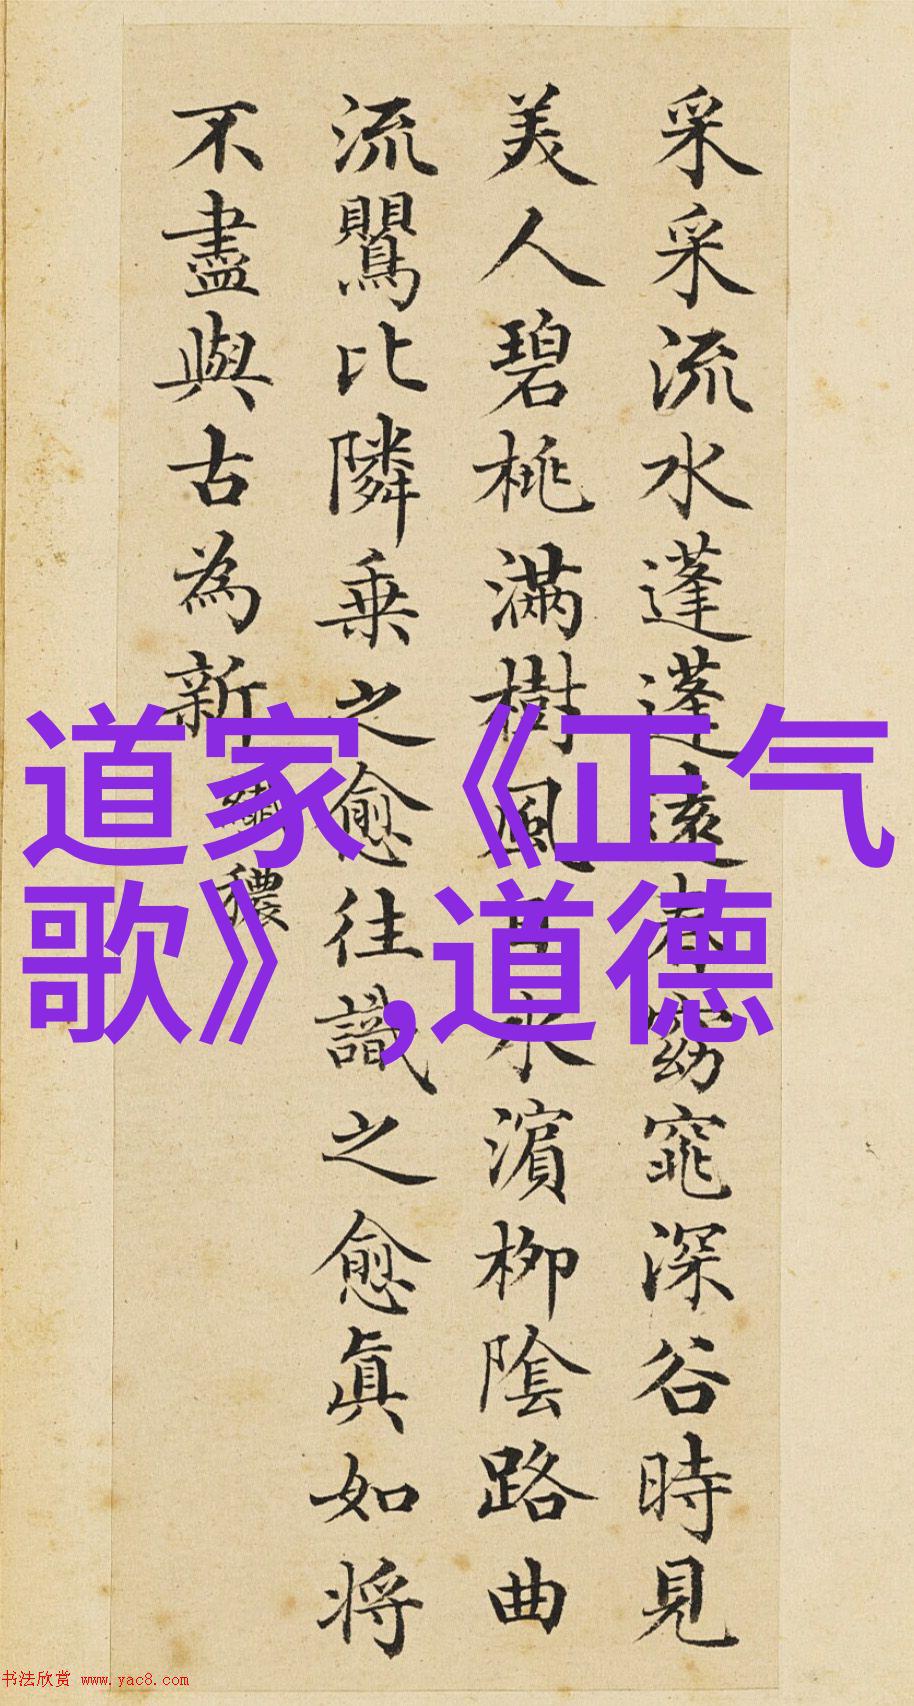 采采流水蓬蓬遠春窈窕深谷時見
美人碧桃滿樹風日水濱柳陰路曲
流鸎比隣乗之愈往識之愈眞如将
不盡與古為新
穠
道家《正气
歌》,道德
书法欣赏 www.yac8.com